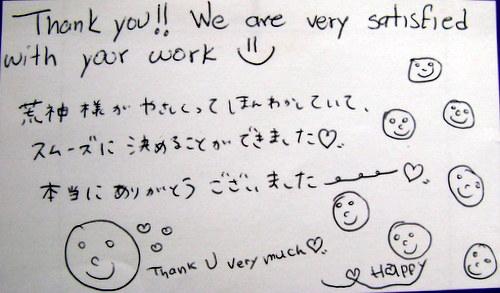 Thank you!! We are very satisfied
with your work
荒神様が やさしくって ほんわかしていて、
スムーズに 決めることが できました♡.
本当に ありがとう ございました ♡.
Thank U very much♡.
♡ HAPPY